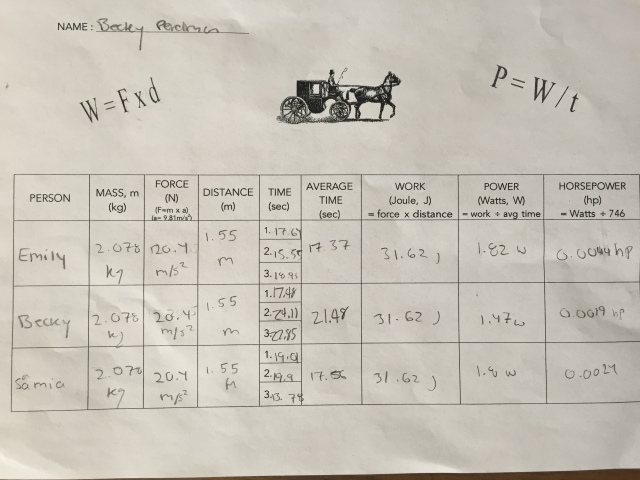 NAME: Becky
W=Fxd
P=W/t
PERSON MASS, m (kg) FORCE (N) (F=m x a) (a= 9.81m/s²) DISTANCE (m) TIME (sec) AVERAGE TIME (sec) WORK (Joule, J) = force x distance POWER (Watts, W) = work ÷ avg time HORSEPOWER (hp) = Watts ÷ 746
Emily 2.078 kg 20.4 m/s² 1.55 m 1. 17.64 2. 15.55 3. 18.93 17.37 31.62 J 1.82 w 0.0044 hp
Becky 2.078 kg 20.4 m/s² 1.55 m 1. 17.48 2. 24.11 3. 22.85 21.48 31.62 J 1.47 w 0.0019 hp
Samia 2.078 kg 20.4 m/s² 1.55 m 1. 19.01 2. 19.9 3. 13.78 17.56 31.62 J 1.8 w 0.0024